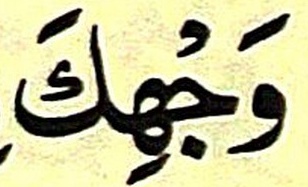 وَجْهِكَ